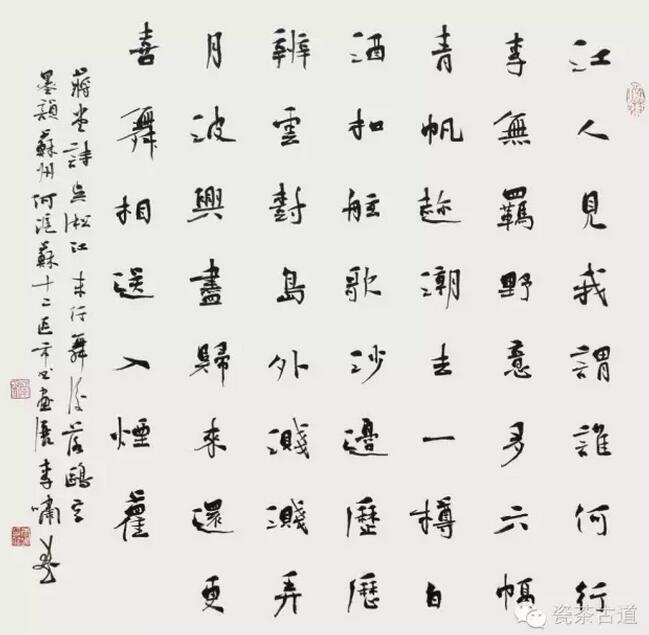 江人見我謂誰何行
李無羈野意多六幅
青帆趂潮去一樽白
酒扣舷歌沙邊歷歷
辨雲樹島外濺濺弄
月波興盡歸來還更
喜舞相送入煙蘿
蔣堂詩吳淞江末行舞後落鷗字
墨韻蘇州蘇十二區市書畫展李嘯書
瓷茶古道